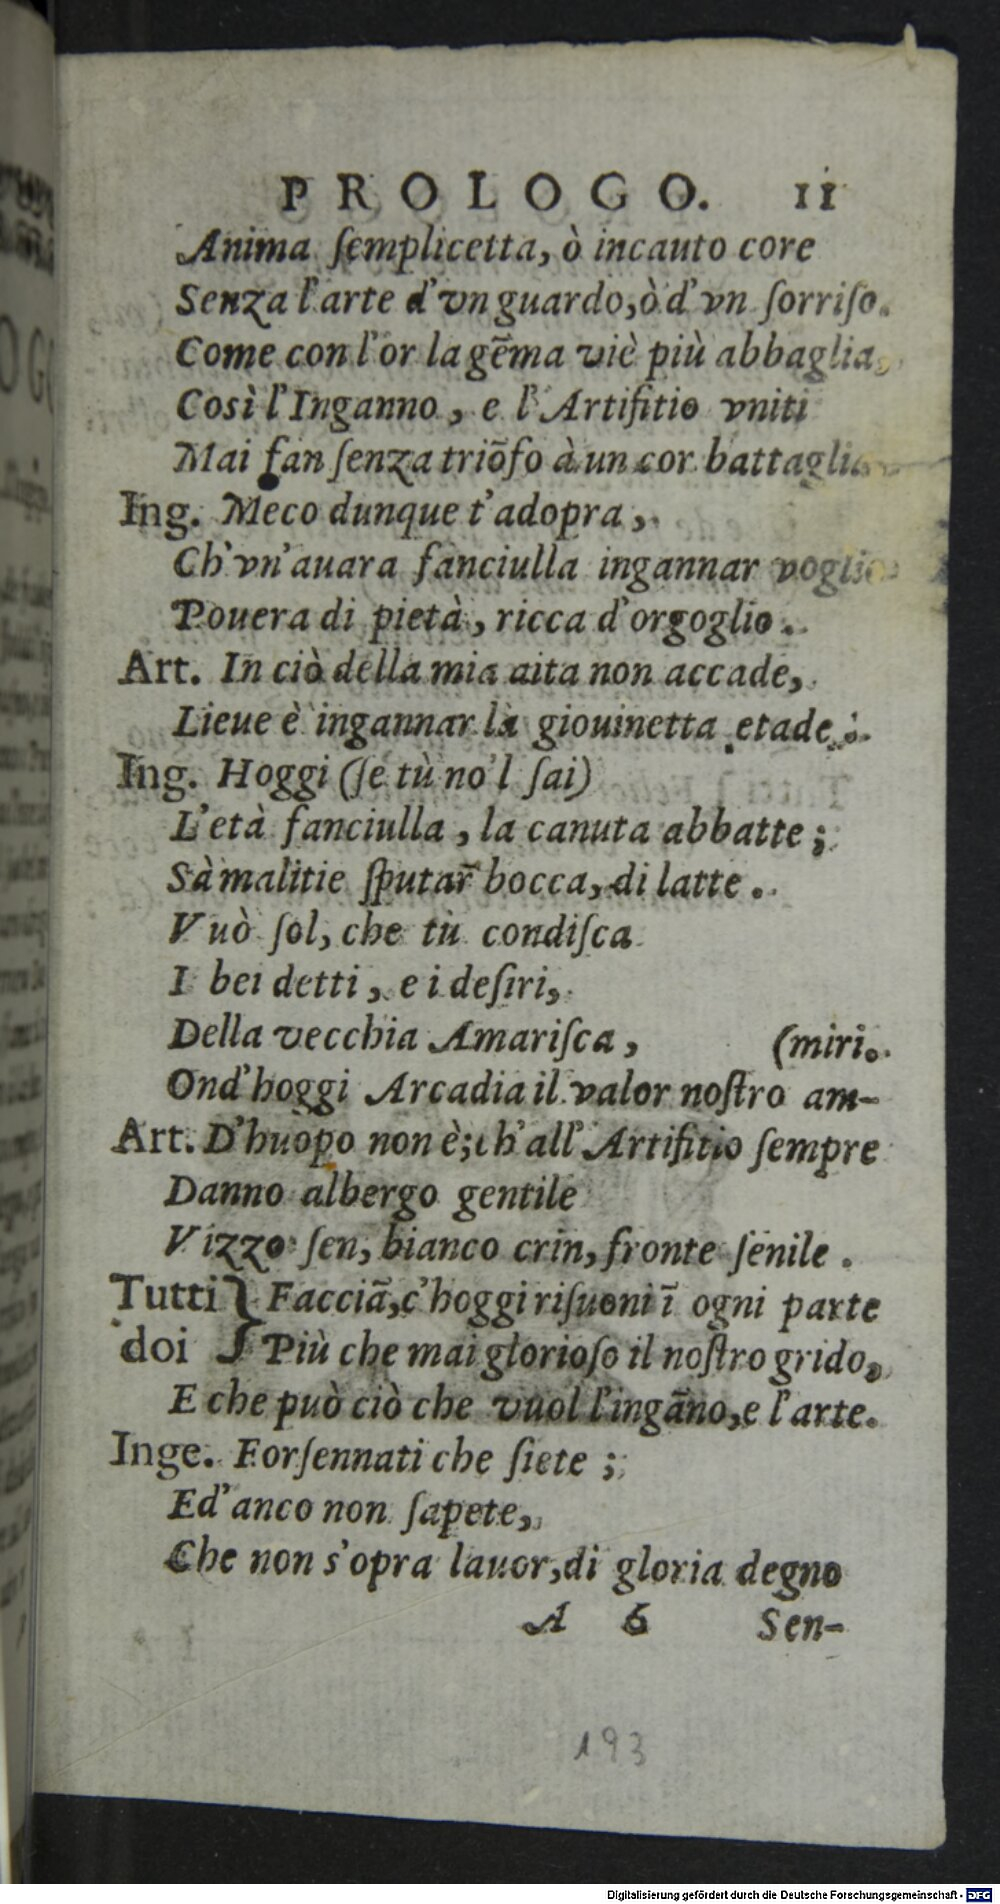 PROLOGO. 11
Anima ſemplicetta, ò incauto core
Senza l'arte d'vn guardo, ò d'vn ſorriſo.
Come con l'or la gēma viè più abbaglia,
Così l'Inganno, e l'Artifitio vniti
Mai fan ſenza triōfo à un cor battaglia
Ing. Meco dunque t'adopra,
Ch'vn'auara fanciulla ingannar voglio
Pouera di pietà, ricca d'orgoglio.
Art. In ciò della mia aita non accade,
Lieue è ingannar la giouinetta etade;
Ing. Hoggi (ſe tù no'l ſai)
L'età fanciulla, la canuta abbatte;
Sà malitie ſputar bocca, di latte.
Vuò ſol, che tù condiſca
I bei detti, e i deſiri,
Della vecchia Amariſca, (miri.
Ond'hoggi Arcadia il valor noſtro am-
Art. D'huopo non è; ch'all'Artifitio ſempre
Danno albergo gentile
Vizzo ſen, bianco crin, fronte ſenile.
Tutti } Facciā, c'hoggi riſuoni ī ogni parte
doi } Più che mai glorioſo il noſtro grido,
E che può ciò che vuol l'ingāno, e l'arte.
Inge. Forſennati che ſiete;
Ed'anco non ſapete,
Che non s'opra lauor, di gloria degno
A 6 Sen-
193
Digitalisierung gefördert durch die Deutsche Forschungsgemeinschaft - DFG